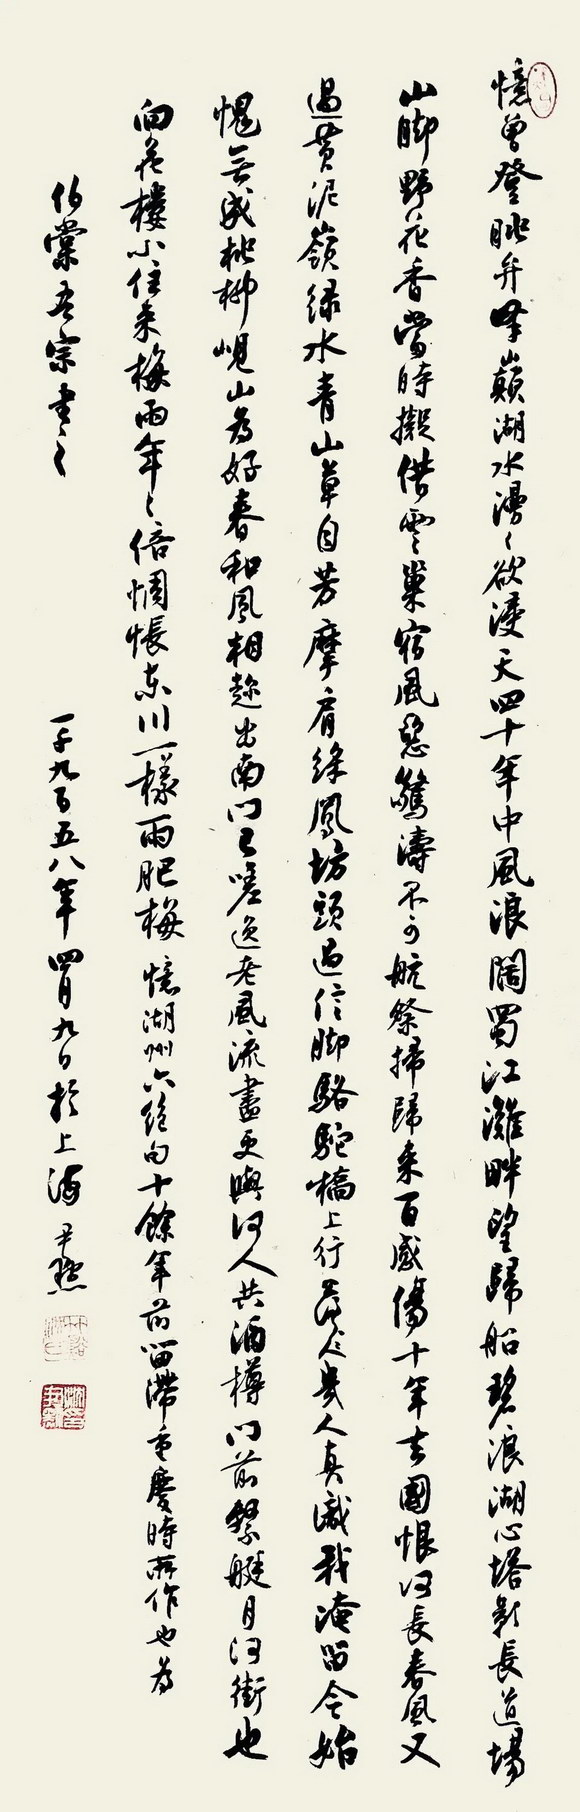 憶曾登眺弁峯巔湖水漫々欲浸天四十年中風浪闊蜀江灘畔望歸船碧浪湖心塔影長道場
山脚野花香當時擬借雲巢宿風惡驚濤不可航祭掃歸來百感傷十年去國恨何長春風又
過黄泥嶺綠水青山草自芳摩肩綵鳳坊頭過信脚駱駝橋上行茫々幾人真識我淹留今始
愧無成桃柳峴山為好春和風相趁出南門已嗟逸老風流盡更與何人共酒樽門前繫艇月河街也
向花樓小住來梅雨年々倍惆悵東川一樣雨肥梅 憶湖州六絕句十餘年前留滯重慶時所作也為
伯棠吾宗書之 一千九百五八年四月九日於上海 尹默